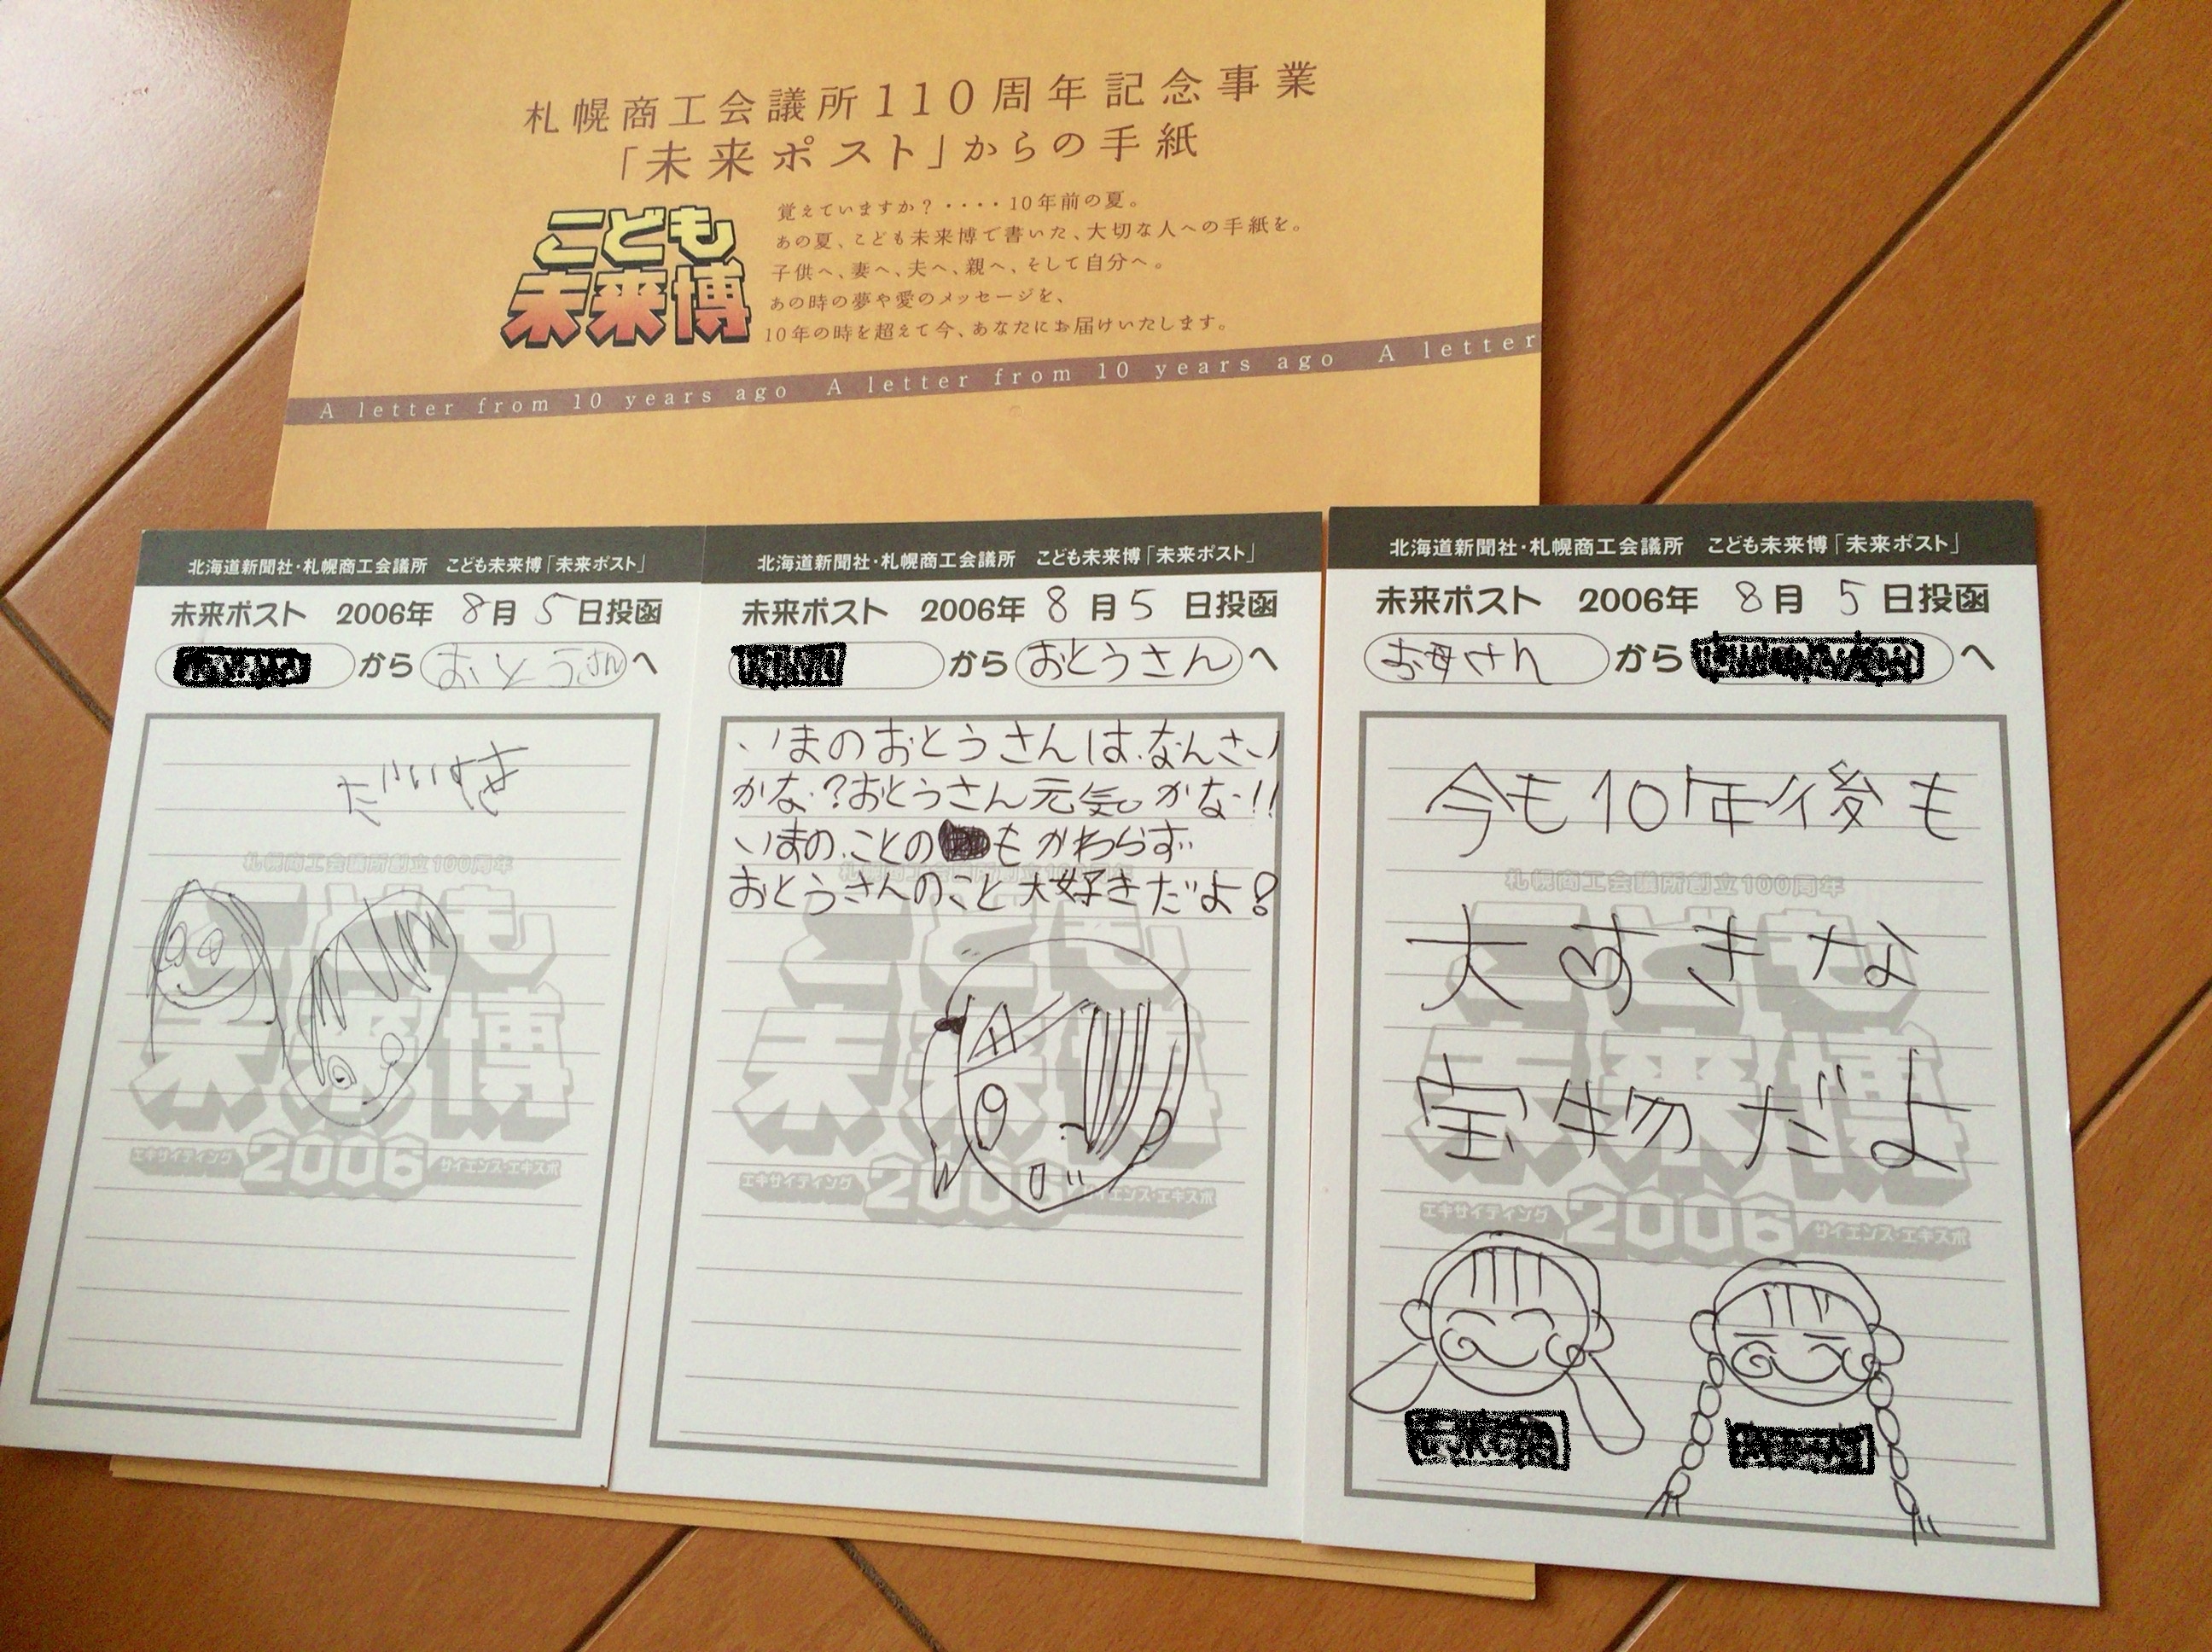 札幌商工会議所110周年記念事業
「未来ポスト」からの手紙
こども
未来博
覚えていますか?・・・・10年前の夏。
あの夏、こども未来博で書いた、大切な人への手紙を。
子供へ、妻へ、夫へ、親へ、そして自分へ。
あの時の夢や愛のメッセージを、
10年の時を超えて今、あなたにお届けいたします。
A letter from 10 years ago A letter from 10 years ago A letter
北海道新聞社・札幌商工会議所 こども未来博「未来ポスト」
未来ポスト 2006年 8月 5日投函
から おとうさん へ
だいすき
札幌商工会議所創立100周年
こども
未来博
2006
エキサイティング サイエンス・エキスポ
北海道新聞社・札幌商工会議所 こども未来博「未来ポスト」
未来ポスト 2006年 8月5 日投函
から おとうさん へ
いまのおとうさんは、なんさい
かな?おとうさん元気かな!!
いまのことの もかわらず
おとうさんのこと大好きだよ
札幌商工会議所創立100周年
こども
未来博
2006
エキサイティング サイエンス・エキスポ
北海道新聞社・札幌商工会議所 こども未来博「未来ポスト」
未来ポスト 2006年 8月 5日投函
お母さん から へ
今も10年後も
大すきな
宝物だよ
札幌商工会議所創立100周年
こども
未来博
2006
エキサイティング サイエンス・エキスポ